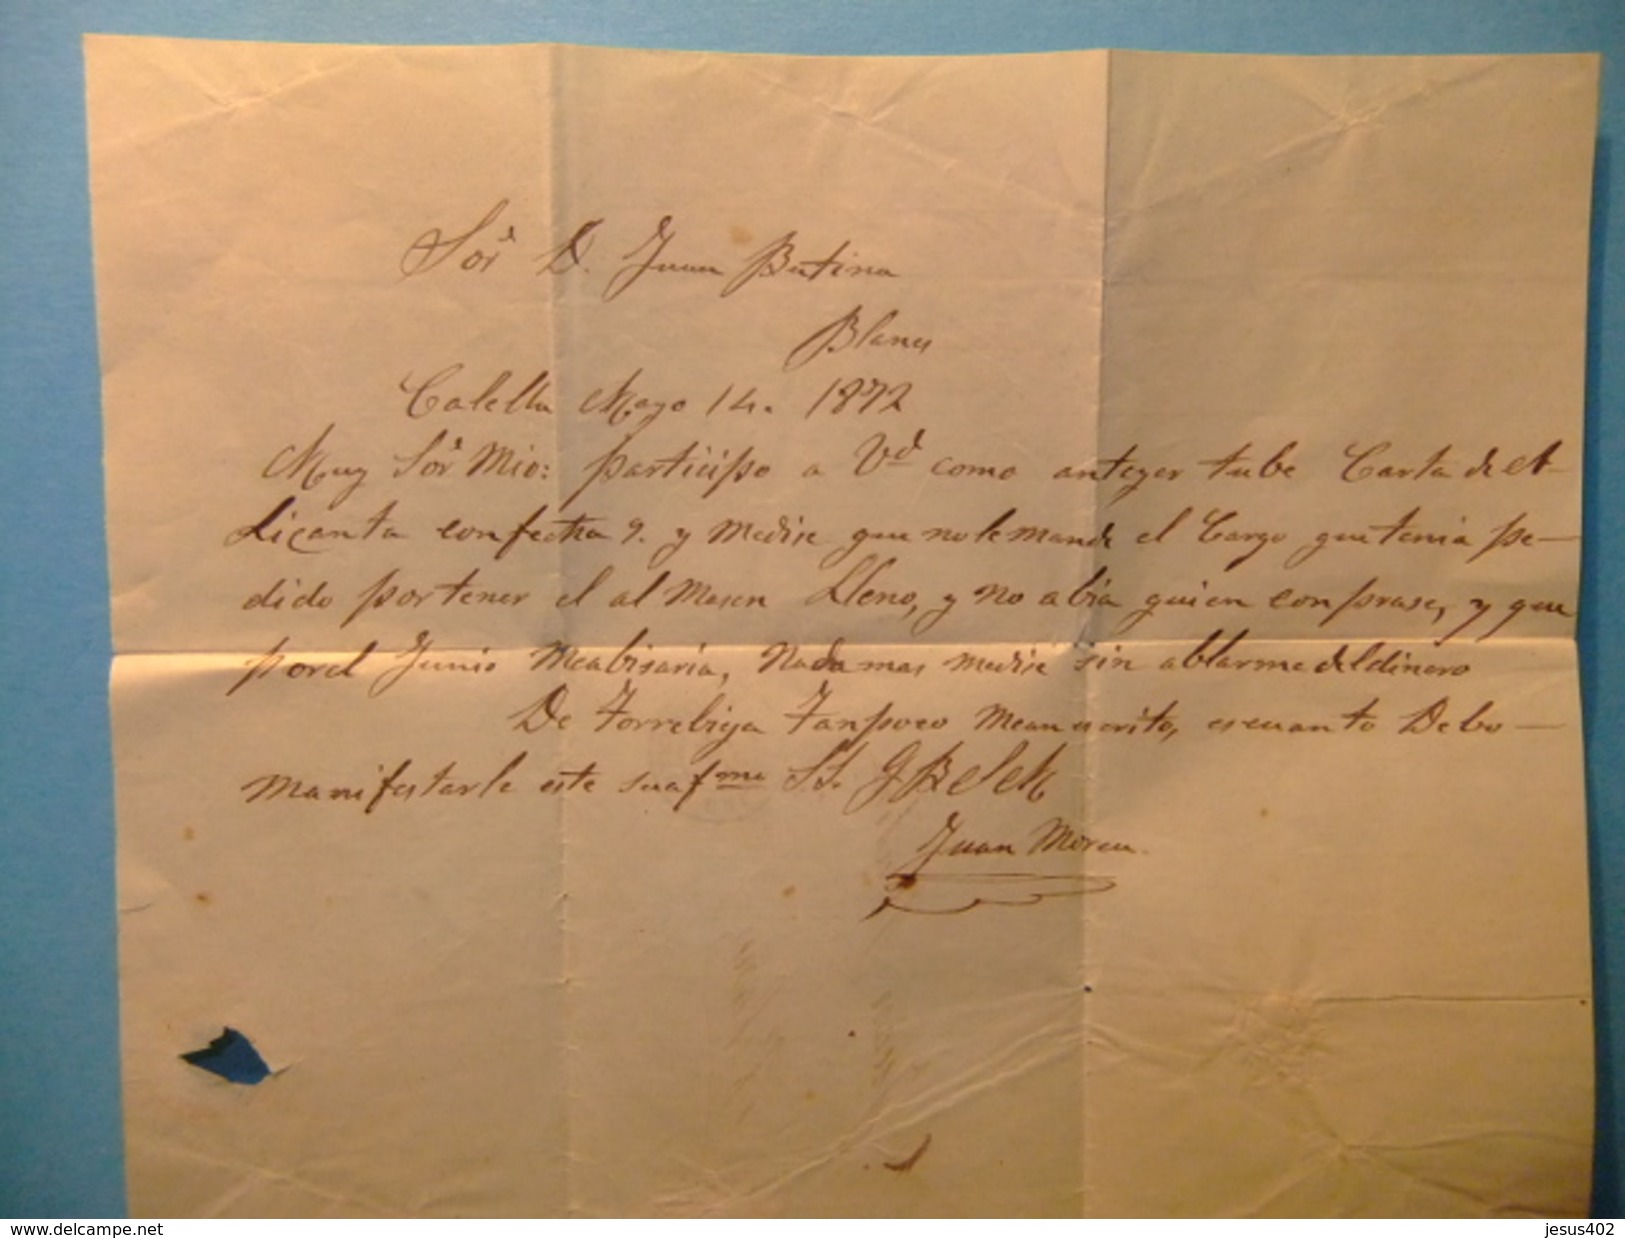 Sor D. Juan Butina
Blanes
Calella Mayo 14. 1872
Muy Sor Mio: participo a Vd como anteyer tube Carta de A-
Licanta con fecha 9. y Medise que no le mande el Cargo que tenia pe-
dido por tener el al Masen Lleno, y no abia quien conprase, y que
por el Junio Meabisaria, Nada mas medise sin ablarme del dinero
De Torrebiqa Tanpoco Mean escrito, es cuanto Debo-
manifestarle este su afmo SS. Q B S M
Juan Moreu.
www.delcampe.net
jesus402